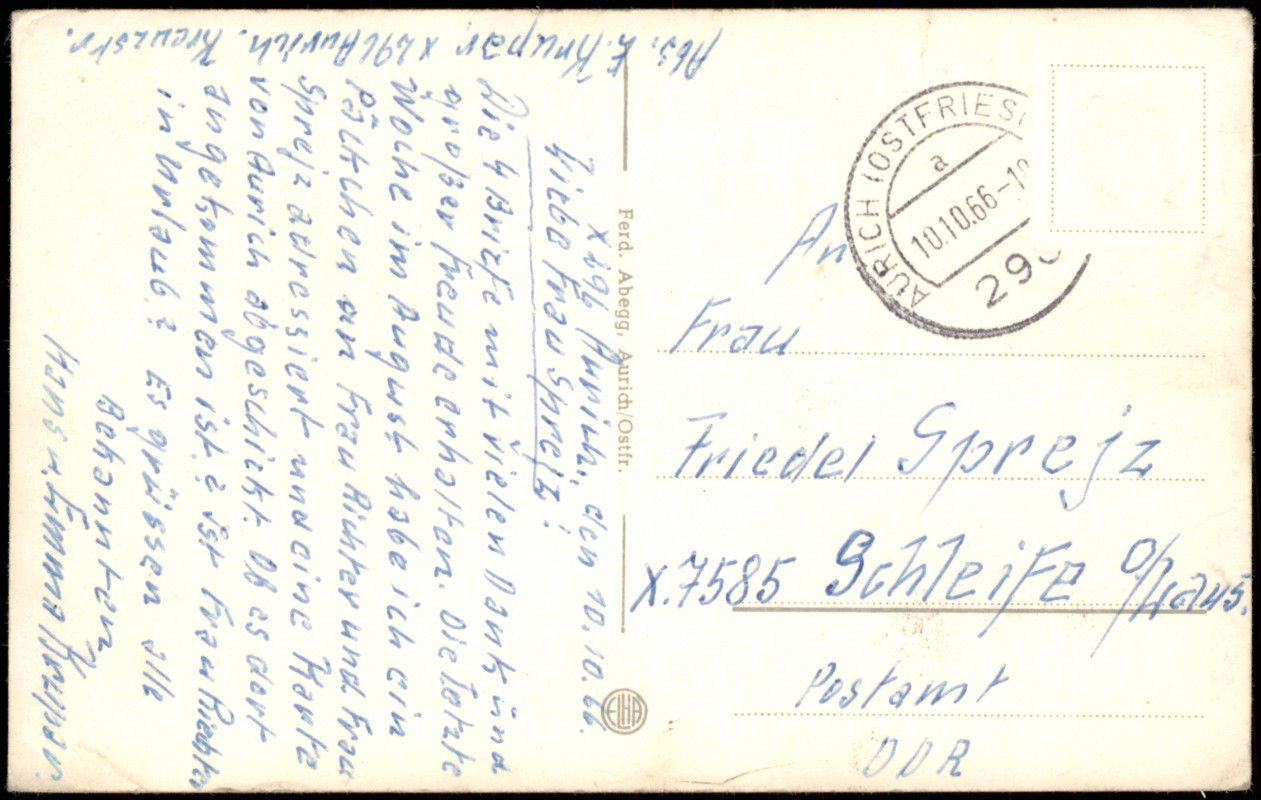 Abs. E. Krupar, x 296 Aurich. Kreuzstr.
x 296 Aurich, den 10.10.66.
Liebe Frau Sprejz!
Die 4 Briefe mit vielen Dank und
großer Freude erhalten. Die letzte
Woche im August habe ich ein
Päckchen an Frau Richter und Frau
Sprejz adressiert und eine Karte
von Aurich abgeschickt. Ob es dort
angekommen ist? ist Frau Richter
in Urlaub? Es grüssen alle
Bekannten
Hans u. Emma Krupar.
Ferd. Abegg, Aurich/Ostfr.
ELHA
AURICH (OSTFRIES
a
10.10.66-1
296
An
Frau
Friedel Sprejz
X.7585 Schleife O/Laus.
Postamt
DDR